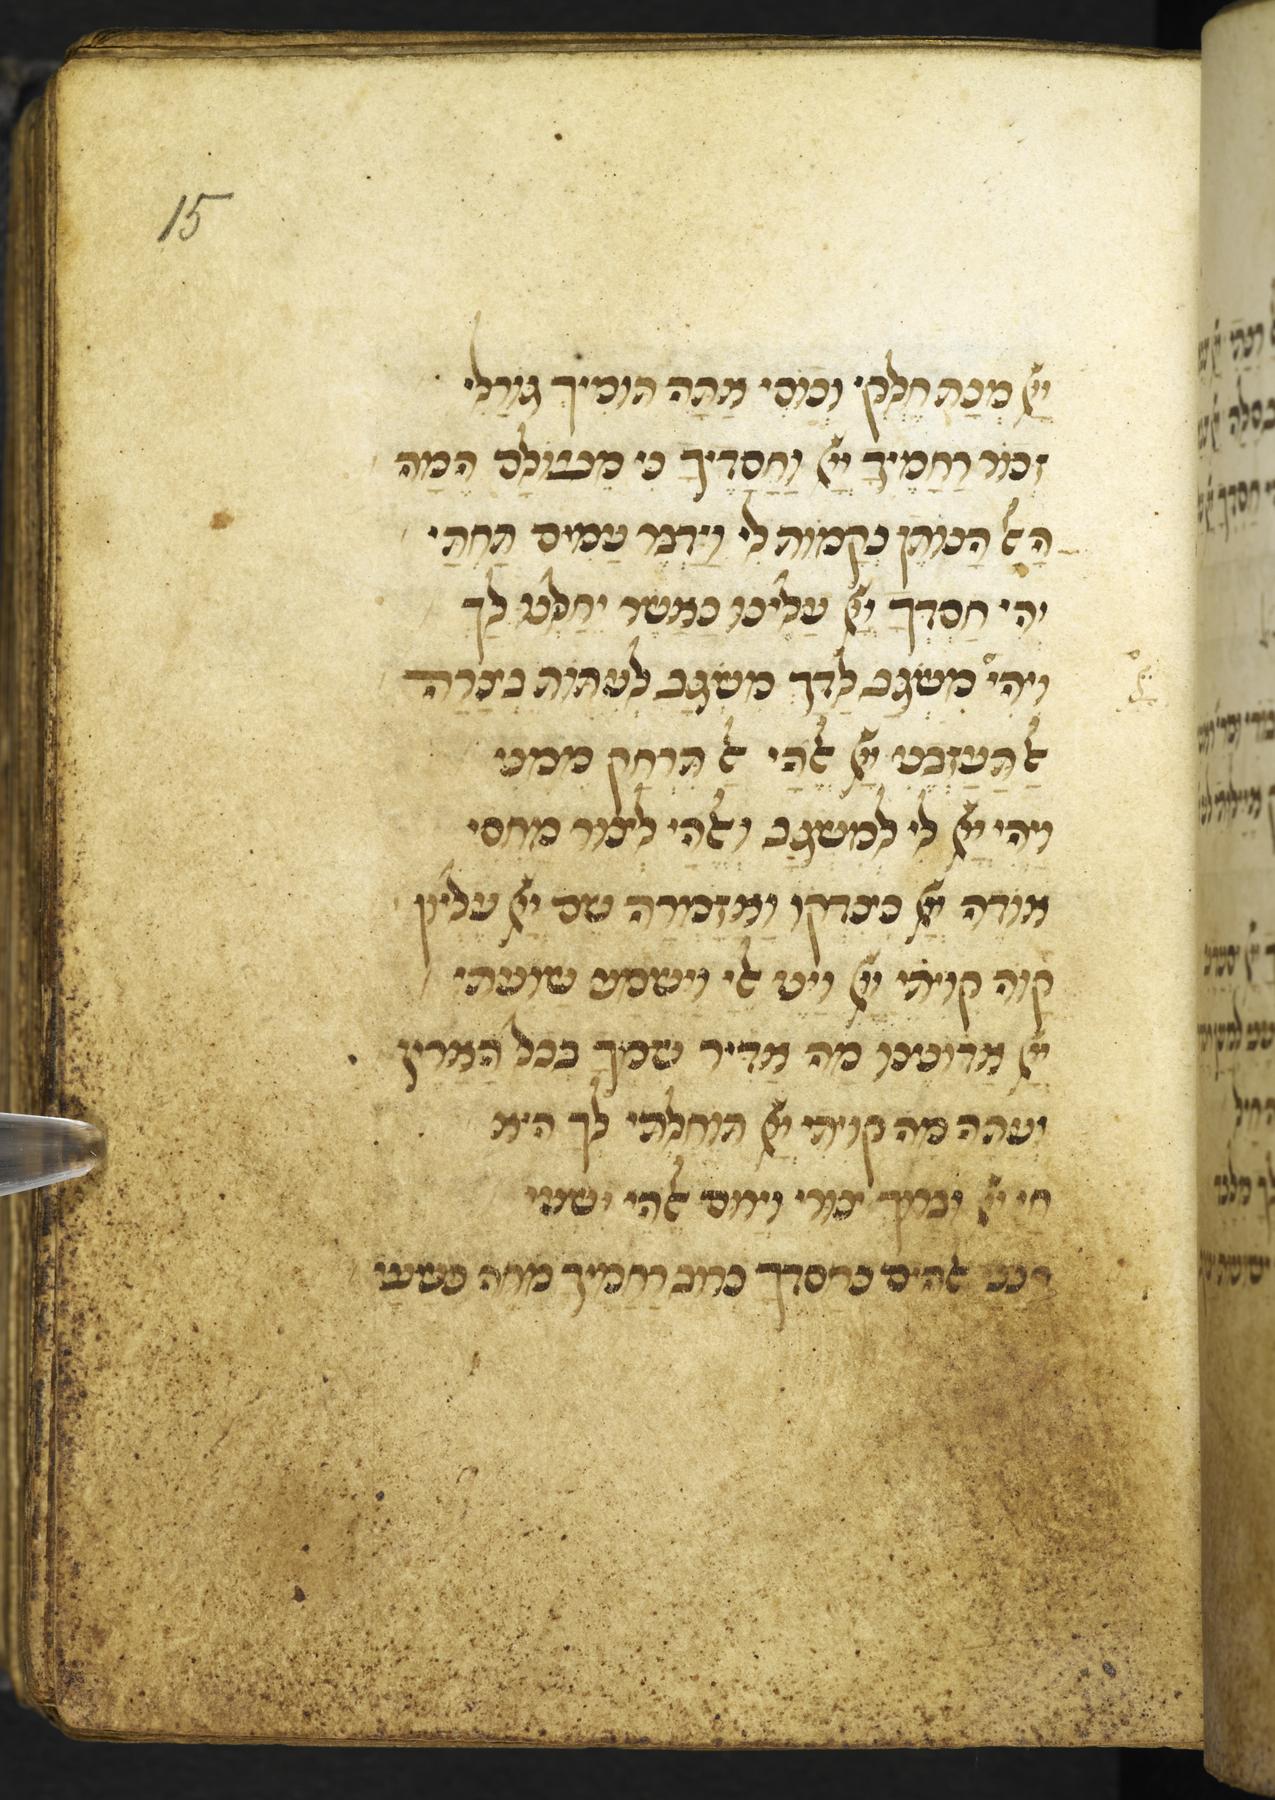 15
יי מנת חלקי וכוסי אתה תומיך גורלי
זכור רחמיך יי וחסדיך כי מעולם המה
האל הנותן נקמות לי וידבר עמים תחתי
יהי חסדך יי עלינו כאשר יחלנו לך
ויהי משגב לדך משגב לעתות בצרה
אל תעזבני יי אלהי אל תרחק ממני
ויהי יי לי למשגב ואלהי לצור מחסי
אודה יי כצדקו ואזמירה שם יי עליון
קוה קויתי יי ויט אלי וישמע שועתי
יי אדונינו מה אדיר שמך בכל הארץ
ועתה מה קויתי יי תוחלתי לך היא
חי יי וברוך צורי וירום אלהי ישעי
חנני אלהים כחסדך כרוב רחמיך מחה פשעי